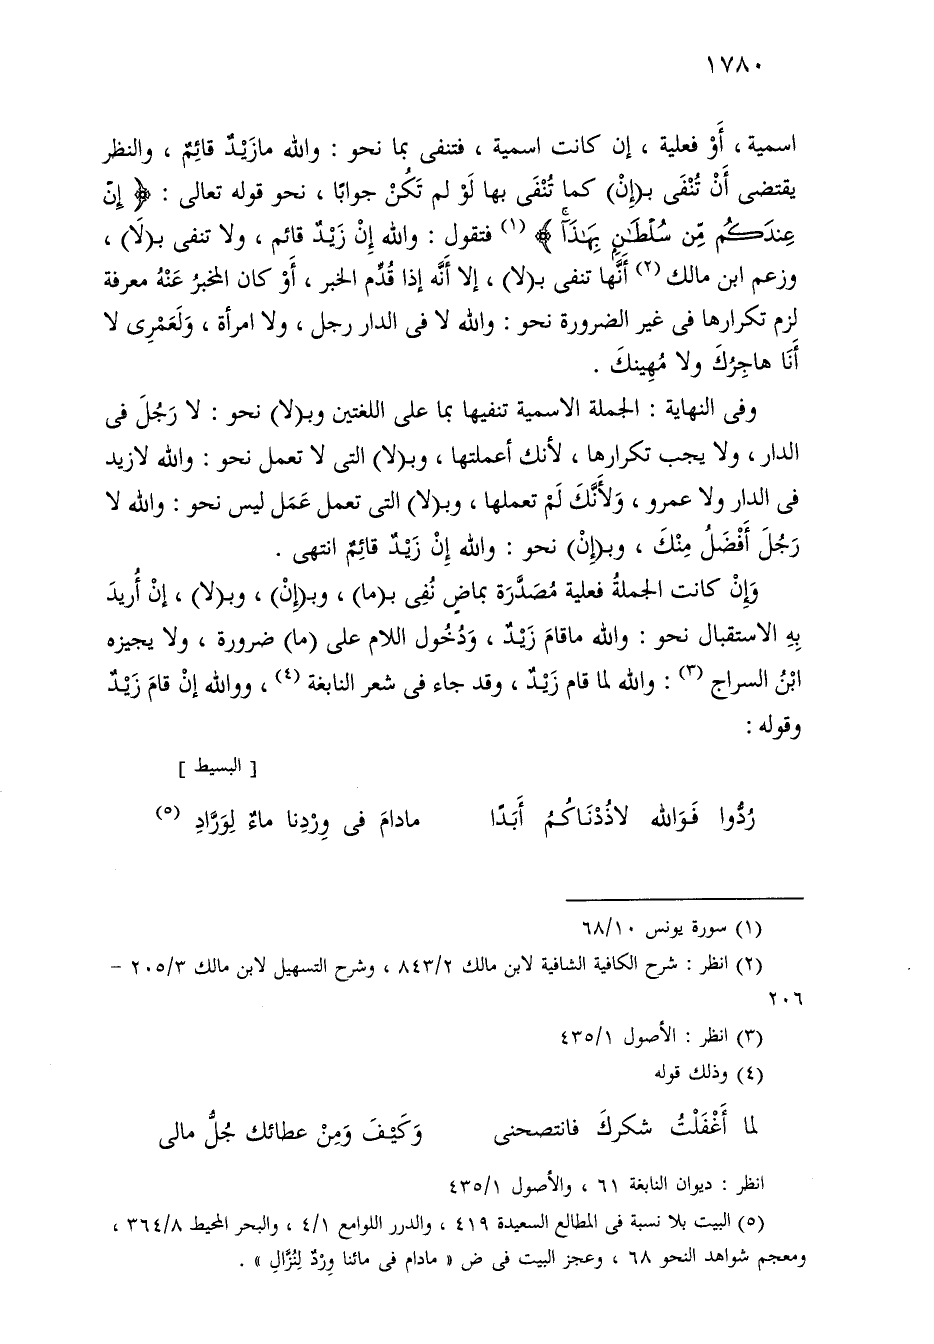 ١٧٨٠
اسمية ، أَوْ فعلية ، إن كانت اسمية ، فتنفى بما نحو : والله مازَيْدٌ قائِمٌ ، والنظر
يقتضى أَنْ تُنْفَى بـ(إنْ) كما تُنْفَى بها لَوْ لم تَكُنْ جوابًا ، نحو قوله تعالى : ﴿ إِنْ
عِندَكُم مِّن سُلْطَـٰنٍۭ بِهَـٰذَآ ﴾ (١) فتقول : والله إنْ زَيْدٌ قائم ، ولا تنفى بـ(لَا) ،
وزعم ابن مالك (٢) أَنَّها تنفى بـ(لا) ، إلا أَنَّه إذا قُدِّم الخبر ، أَوْ كان المخبرُ عَنْهُ معرفة
لزم تكرارها فى غير الضرورة نحو : والله لا فى الدار رجل ، ولا امرأة ، وَلَعَمْرِى لا
أَنَا هاجِرُكَ ولا مُهِينكَ .
وفى النهاية : الجملة الاسمية تنفيها بما على اللغتين وبـ(لا) نحو : لا رَجُلَ فى
الدار ، ولا يجب تكرارها ، لأنك أعملتها ، وبـ(لا) التى لا تعمل نحو : والله لازيد
فى الدار ولا عمرو ، وَلأَنَّكَ لَمْ تعملها ، وبـ(لا) التى تعمل عَمَل ليس نحو : والله لا
رَجُلَ أَفْضَلُ مِنْكَ ، وبـ(إنْ) نحو : والله إِنْ زَيْدٌ قائِمٌ انتهى .
وَإِنْ كانت الجملةُ فعلية مُصَدَّرَة بماضٍ نُفِى بـ(ما) ، وبـ(إِنْ) ، وبـ(لا) ، إنْ أُريدَ
بِهِ الاستقبال نحو : والله ماقامَ زَيْدٌ ، وَدُخُول اللام على (ما) ضرورة ، ولا يجيزه
ابْنُ السراج (٣) : والله لما قام زَيْدٌ ، وقد جاء فى شعر النابغة (٤) ، ووالله إنْ قامَ زَيْدٌ
وقوله :
[ البسيط ]
رُدُّوا فَوَالله لاذُدْنَاكُمُ أَبَدًا مادامَ فى وِرْدِنا ماءٌ لِوَرَّادِ (٥)
(١) سورة يونس ٦٨/١٠
(٢) انظر : شرح الكافية الشافية لابن مالك ٨٤٣/٢ ، وشرح التسهيل لابن مالك ٢٠٥/٣ –
٢٠٦
(٣) انظر : الأصول ٤٣٥/١
(٤) وذلك قوله
لما أَغْفَلْتُ شكركَ فانتصحنى وَكَيْفَ وَمِنْ عطائك جُلُّ مالى
انظر : ديوان النابغة ٦١ ، والأصول ٤٣٥/١
(٥) البيت بلا نسبة فى المطالع السعيدة ٤١٩ ، والدرر اللوامع ٤/١ ، والبحر المحيط ٣٦٤/٨ ،
ومعجم شواهد النحو ٦٨ ، وعجز البيت فى ض « مادام فى مائنا وِرْدٌ لِنُزَّالِ » .